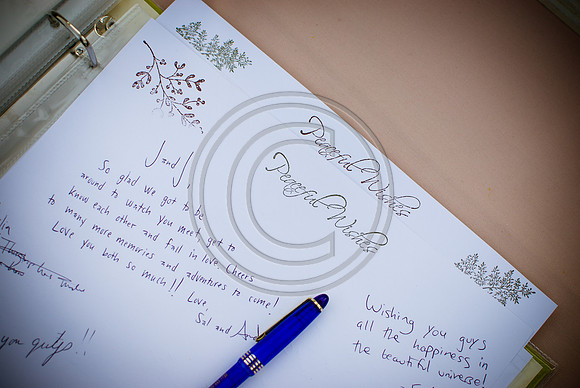 Peaceful Wishes
Peaceful Wishes
J and J
So glad we got to be
around to watch you meet get to
know each other and fall in love. Cheers
to many more memories and adventures to come!
Love you both so much!!
Love,
Sal and
Wishing you guys
all the happiness in
the beautiful universe!
you guys!!
©